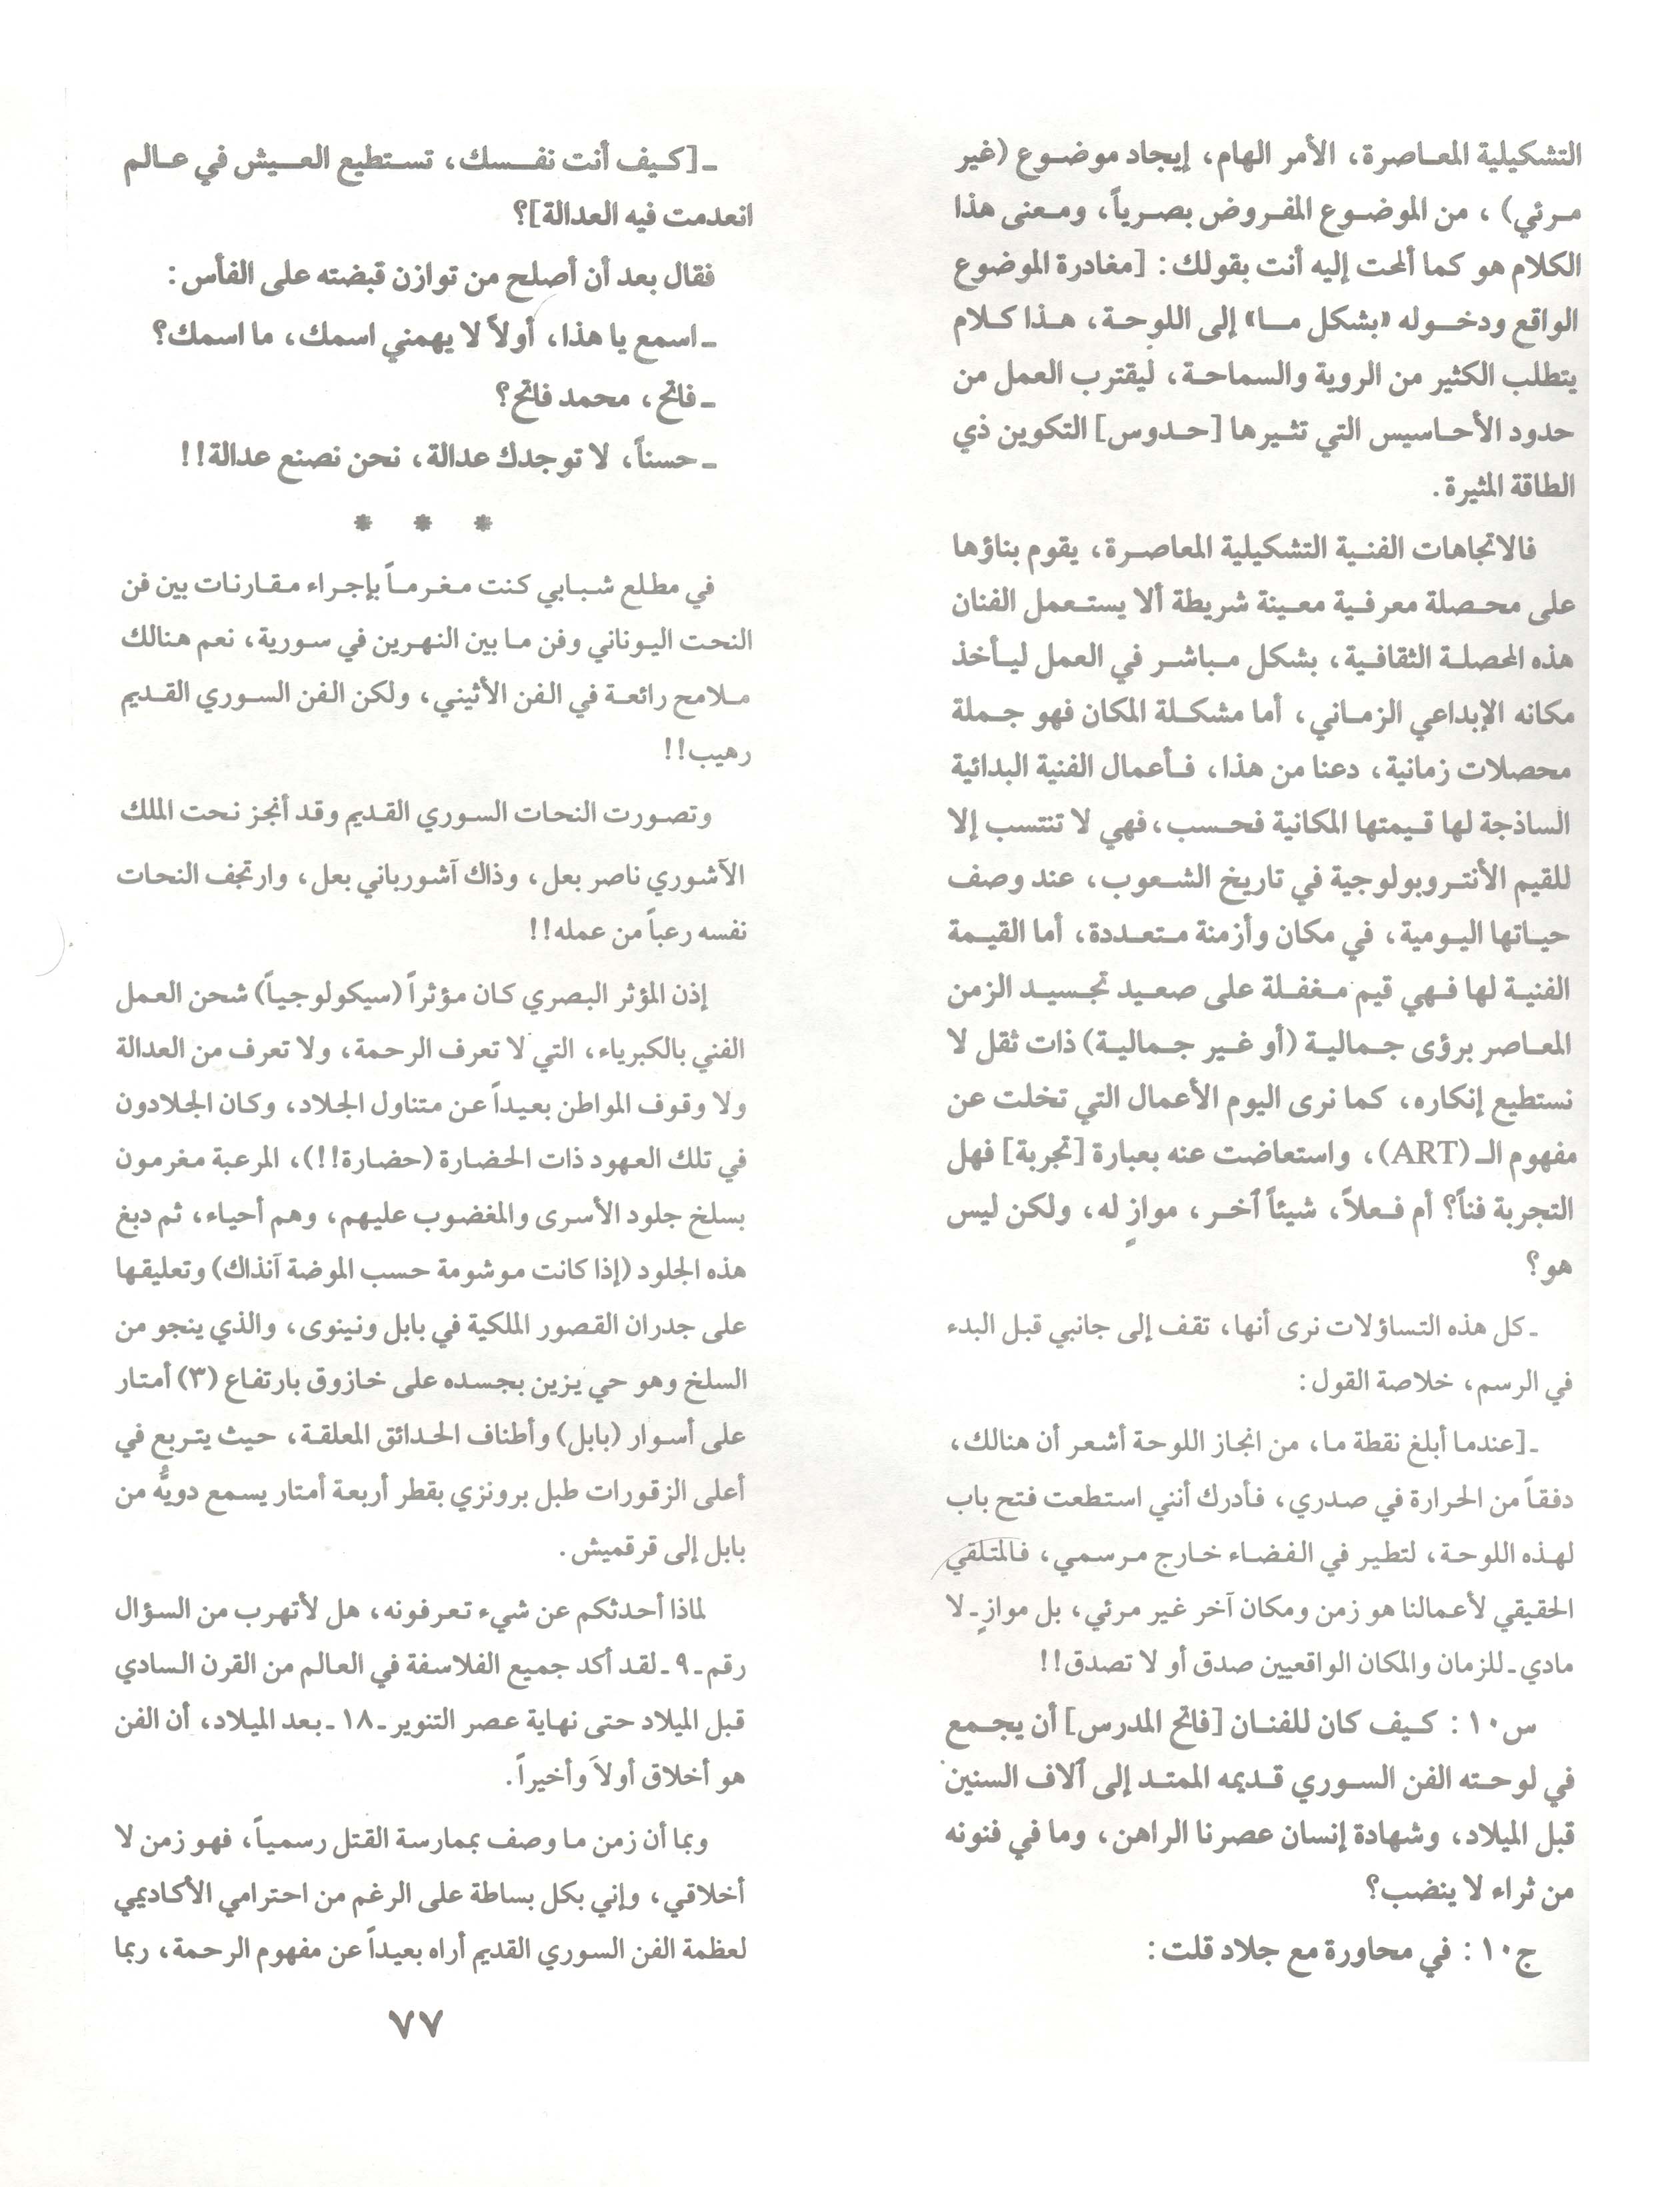 التشكيلية المعاصرة، الأمر الهام، إيجاد موضوع (غير
مرئي)، من الموضوع المفروض بصرياً، ومعنى هذا
الكلام هو كما ألمحت إليه أنت بقولك: [مغادرة الموضوع
الواقع ودخوله «بشكل ما» إلى اللوحة، هذا كلام
يتطلب الكثير من الروية والسماحة، ليقترب العمل من
حدود الأحاسيس التي تثيرها [حدوس] التكوين ذي
الطاقة المثيرة.
فالاتجاهات الفنية التشكيلية المعاصرة، يقوم بناؤها
على محصلة معرفية معينة شريطة ألا يستعمل الفنان
هذه المحصلة الثقافية، بشكل مباشر في العمل ليأخذ
مكانه الإبداعي الزماني، أما مشكلة المكان فهو جملة
محصلات زمانية، دعنا من هذا، فأعمال الفنية البدائية
الساذجة لها قيمتها المكانية فحسب، فهي لا تنتسب إلا
للقيم الأنتروبولوجية في تاريخ الشعوب، عند وصف
حياتها اليومية، في مكان وأزمنة متعددة، أما القيمة
الفنية لها فهي قيم مغفلة على صعيد تجسيد الزمن
المعاصر برؤى جمالية (أو غير جمالية) ذات ثقل لا
نستطيع إنكاره، كما نرى اليوم الأعمال التي تخلت عن
مفهوم الـ (ART)، واستعاضت عنه بعبارة [تجربة] فهل
التجربة فناً؟ أم فعلاً، شيئاً آخر، موازٍ له، ولكن ليس
هو؟
ـ كل هذه التساؤلات نرى أنها، تقف إلى جانبي قبل البدء
في الرسم، خلاصة القول:
ـ [عندما أبلغ نقطة ما، من انجاز اللوحة أشعر أن هنالك،
دفقاً من الحرارة في صدري، فأدرك أنني استطعت فتح باب
لهذه اللوحة، لتطير في الفضاء خارج مرسمي، فالمتلقي
الحقيقي لأعمالنا هو زمن ومكان آخر غير مرئي، بل موازٍ ـ لا
مادي ـ للزمان والمكان الواقعيين صدق أو لا تصدق!!
س١٠: كيف كان للفنان [فاتح المدرس] أن يجمع
في لوحته الفن السوري قديمه الممتد إلى آلاف السنين
قبل الميلاد، وشهادة إنسان عصرنا الراهن، وما في فنونه
من ثراء لا ينضب؟
ج١٠: في محاورة مع جلاد قلت:
ـ [كيف أنت نفسك، تستطيع العيش في عالم
انعدمت فيه العدالة]؟
فقال بعد أن أصلح من توازن قبضته على الفأس:
ـ اسمع يا هذا، أولاً لا يهمني اسمك، ما اسمك؟
ـ فاتح، محمد فاتح؟
ـ حسناً، لا توجدك عدالة، نحن نصنع عدالة!!
* * *
في مطلع شبابي كنت مغرماً بإجراء مقارنات بين فن
النحت اليوناني وفن ما بين النهرين في سورية، نعم هنالك
ملامح رائعة في الفن الأثيني، ولكن الفن السوري القديم
رهيب!!
وتصورت النحات السوري القديم وقد أنجز نحت الملك
الآشوري ناصر بعل، وذاك آشورباني بعل، وارتجف النحات
نفسه رعباً من عمله!!
إذن المؤثر البصري كان مؤثراً (سيكولوجياً) شحن العمل
الفني بالكبرياء، التي لا تعرف الرحمة، ولا تعرف من العدالة
ولا وقوف المواطن بعيداً عن متناول الجلاد، وكان الجلادون
في تلك العهود ذات الحضارة (حضارة!!)، المرعبة مغرمون
بسلخ جلود الأسرى والمغضوب عليهم، وهم أحياء، ثم دبغ
هذه الجلود (إذا كانت موشومة حسب الموضة آنذاك) وتعليقها
على جدران القصور الملكية في بابل ونينوى، والذي ينجو من
السلخ وهو حي يزين بجسده على خازوق بارتفاع (٣) أمتار
على أسوار (بابل) وأطناف الحدائق المعلقة، حيث يتربع في
أعلى الزقورات طبل برونزي بقطر أربعة أمتار يسمع دويُّه من
بابل إلى قرقميش.
لماذا أحدثكم عن شيء تعرفونه، هل لأتهرب من السؤال
رقم ـ ٩ ـ لقد أكد جميع الفلاسفة في العالم من القرن السادي
قبل الميلاد حتى نهاية عصر التنوير ـ ١٨ ـ بعد الميلاد، أن الفن
هو أخلاق أولاً وأخيراً.
وبما أن زمن ما وصف بممارسة القتل رسمياً، فهو زمن لا
أخلاقي، وإني بكل بساطة على الرغم من احترامي الأكاديمي
لعظمة الفن السوري القديم أراه بعيداً عن مفهوم الرحمة، ربما
٧٧